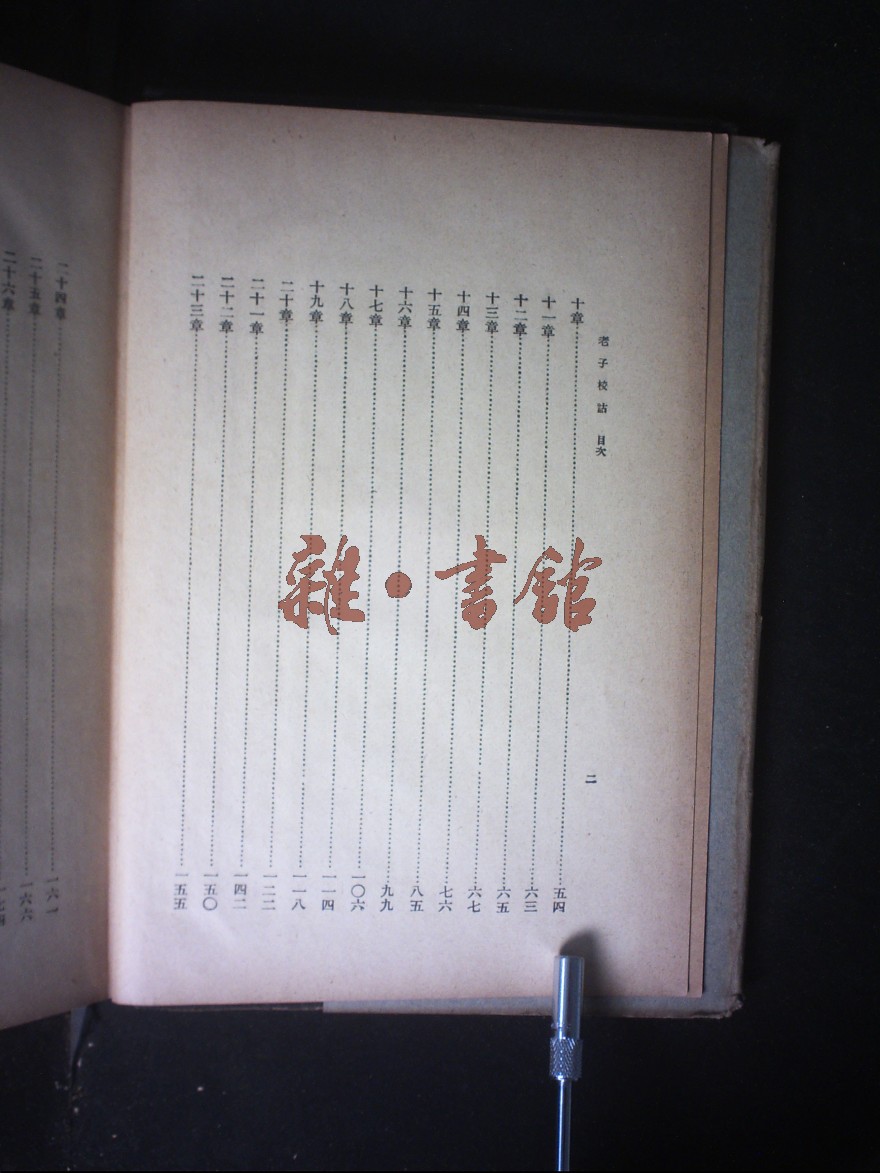 老子校詁 目次
二
十章……五四
十一章……六三
十二章……六五
十三章……六七
十四章……七六
十五章……八五
十六章……九九
十七章……一〇六
十八章……一一四
十九章……一一八
二十章……一二二
二十一章……一四二
二十二章……一五〇
二十三章……一五五
二十四章……一六一
二十五章……一六六
二十六章……一七四
雜·書館